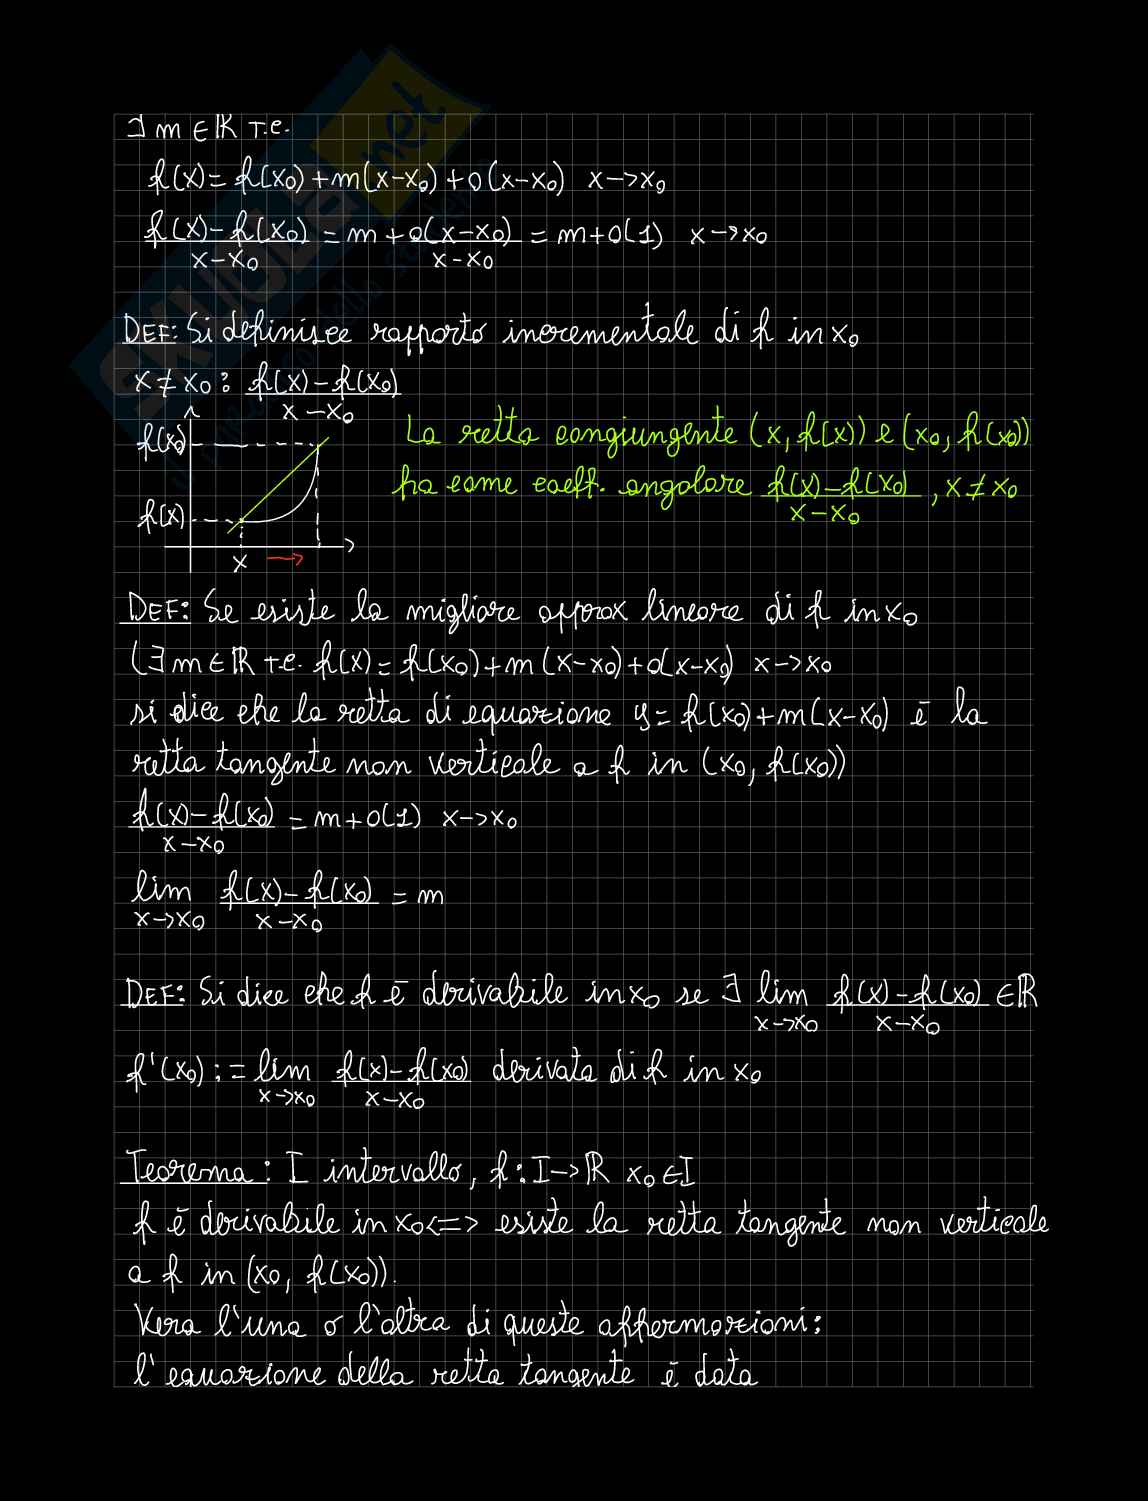 ∃ m ∈ ℝ T.c.
f(x) = f(x₀) + m(x-x₀) + o(x-x₀) x→x₀
f(x)-f(x₀) / x-x₀ = m + o(x-x₀) / x-x₀ = m + o(1) x→x₀
DEF: Si definisce rapporto incrementale di f in x₀
x ≠ x₀ : f(x)-f(x₀) / x-x₀
f(x₀)
f(x)
x
La retta congiungente (x, f(x)) e (x₀, f(x₀))
ha come coeff. angolare f(x)-f(x₀) / x-x₀ , x ≠ x₀
DEF: Se esiste la migliare approx lineare di f in x₀
(∃ m ∈ ℝ t.c. f(x) = f(x₀) + m(x-x₀) + o(x-x₀) x→x₀
si dice che la retta di equazione y = f(x₀) + m(x-x₀) è la
retta tangente non verticale a f in (x₀, f(x₀))
f(x)-f(x₀) / x-x₀ = m + o(1) x→x₀
lim x→x₀ f(x)-f(x₀) / x-x₀ = m
DEF: Si dice che f è derivabile in x₀ se ∃ lim x→x₀ f(x)-f(x₀) / x-x₀ ∈ ℝ
f'(x₀) := lim x→x₀ f(x)-f(x₀) / x-x₀ derivata di f in x₀
Teorema: I intervallo, f: I→ℝ x₀ ∈ I
f è derivabile in x₀ <=> esiste la retta tangente non verticale
a f in (x₀, f(x₀)).
Vera l'una o l'altra di queste affermazioni:
l'equazione della retta tangente è data
SKUOLA.net